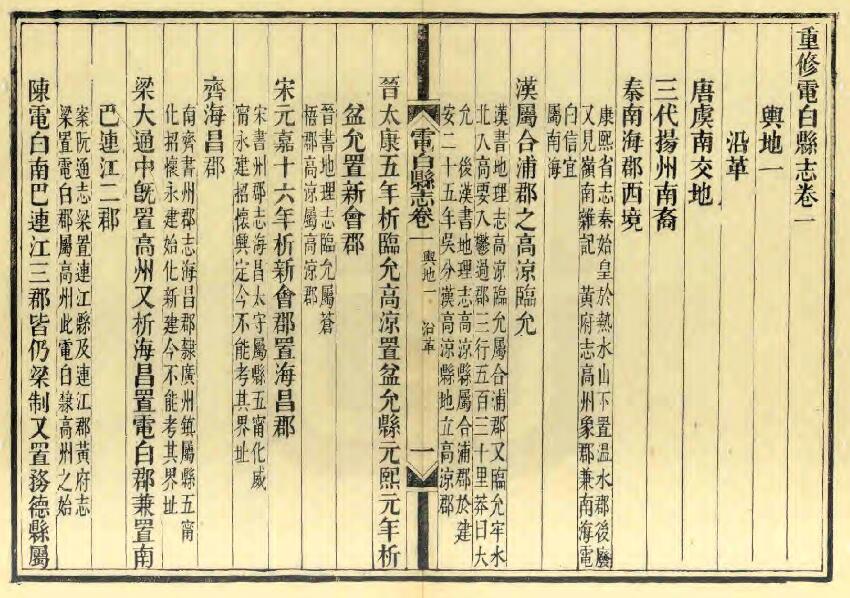 重修電白縣志卷一
輿地一
沿革
唐虞南交地
三代揚州南裔
秦南海郡西境
康熙省志秦始皇於熱水山下置溫水郡後廢
又見嶺南雜記 黃府志高州象郡兼南海電
白信宜
屬南海
漢屬合浦郡之高涼臨允
漢書地理志高涼臨允屬合浦郡又臨允牢水
北入高要入鬱過郡三行五百三十里莽曰大
允 後漢書地理志高涼縣屬合浦郡於建
安二十五年吳分漢高涼縣地立高涼郡
電白縣志卷一
輿地一 沿革
一
晉太康五年析臨允高涼置盆允縣元熙元年析
盆允置新會郡
晉書地理志臨允屬蒼
梧郡高涼屬高涼郡
宋元嘉十六年析新會郡置海昌郡
宋書州郡志海昌太守屬縣五甯化威
甯永建招懷興定今不能考其界址
齊海昌郡
南齊書州郡志海昌郡隸廣州鎮屬縣五甯
化招懷永建始化新建今不能考其界址
梁大通中旣置高州又析海昌置電白郡兼置南
巴連江二郡
案阮通志梁置連江縣及連江郡黃府志
梁置電白郡屬高州此電白隸高州之始
陳電白南巴連江三郡皆仍梁制又置務德縣屬